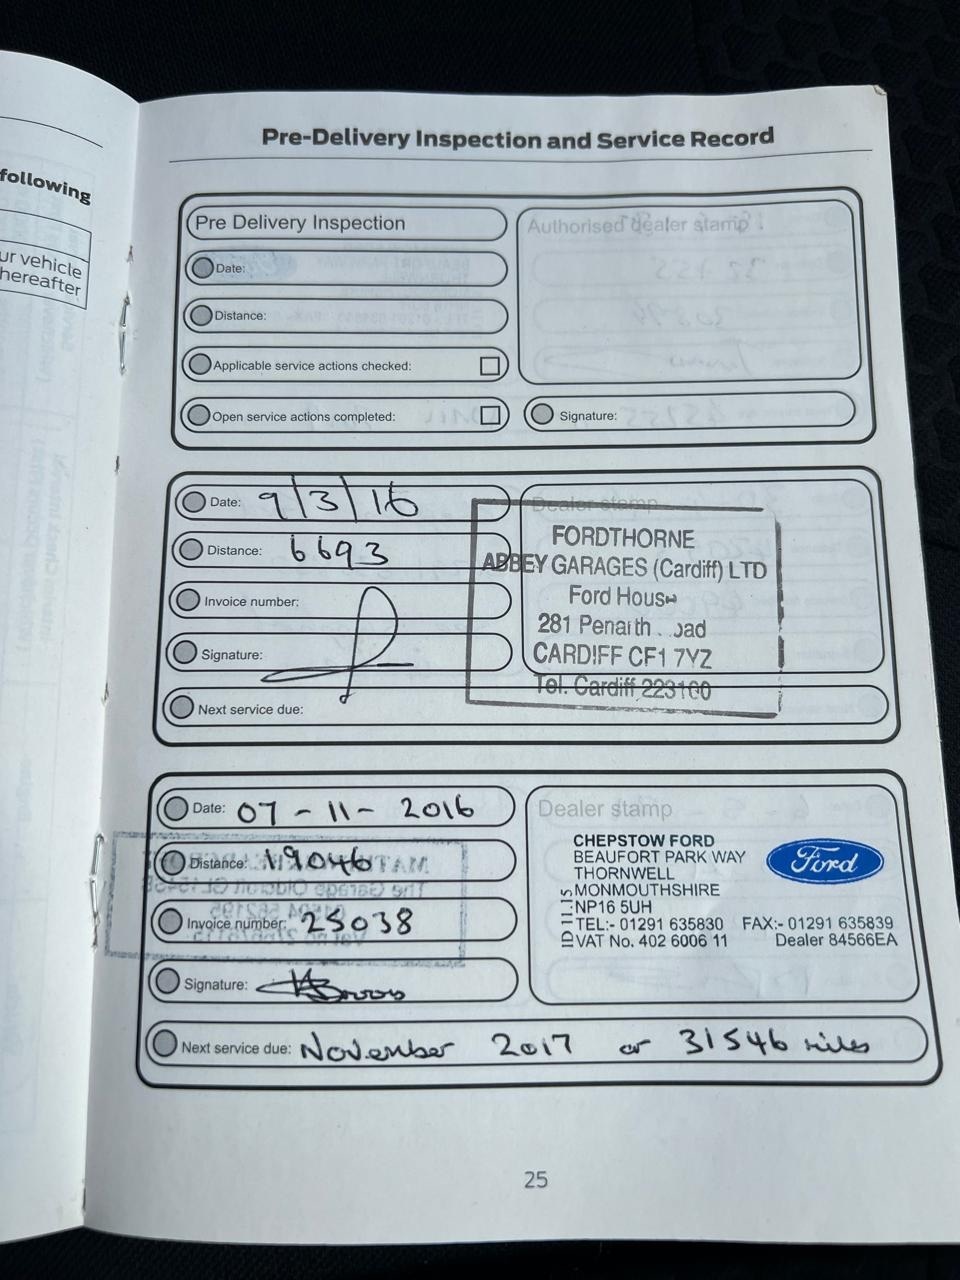 following
ur vehicle
hereafter
Pre-Delivery Inspection and Service Record
Pre Delivery Inspection
Authorised dealer stamp
Date:
Distance:
Applicable service actions checked:
Open service actions completed:
Signature:
Date: 9/3/16
Distance: 6693
Invoice number:
Signature:
Next service due:
Dealer stamp
FORDTHORNE
ABBEY GARAGES (Cardiff) LTD
Ford House
281 Penarth
CARDIFF CF1 7YZ
Tel. Cardiff 223100
Date: 07-11-2016
Distance: 19046
Invoice number: 25038
Signature:
Next service due: November 2017 or 31546 miles
Dealer stamp
CHEPSTOW FORD
BEAUFORT PARK WAY
THORNWELL
MONMOUTHSHIRE
NP16 5UH
TEL:- 01291 635830 FAX:- 01291 635839
VAT No. 402 6006 11 Dealer 84566EA
Ford
25